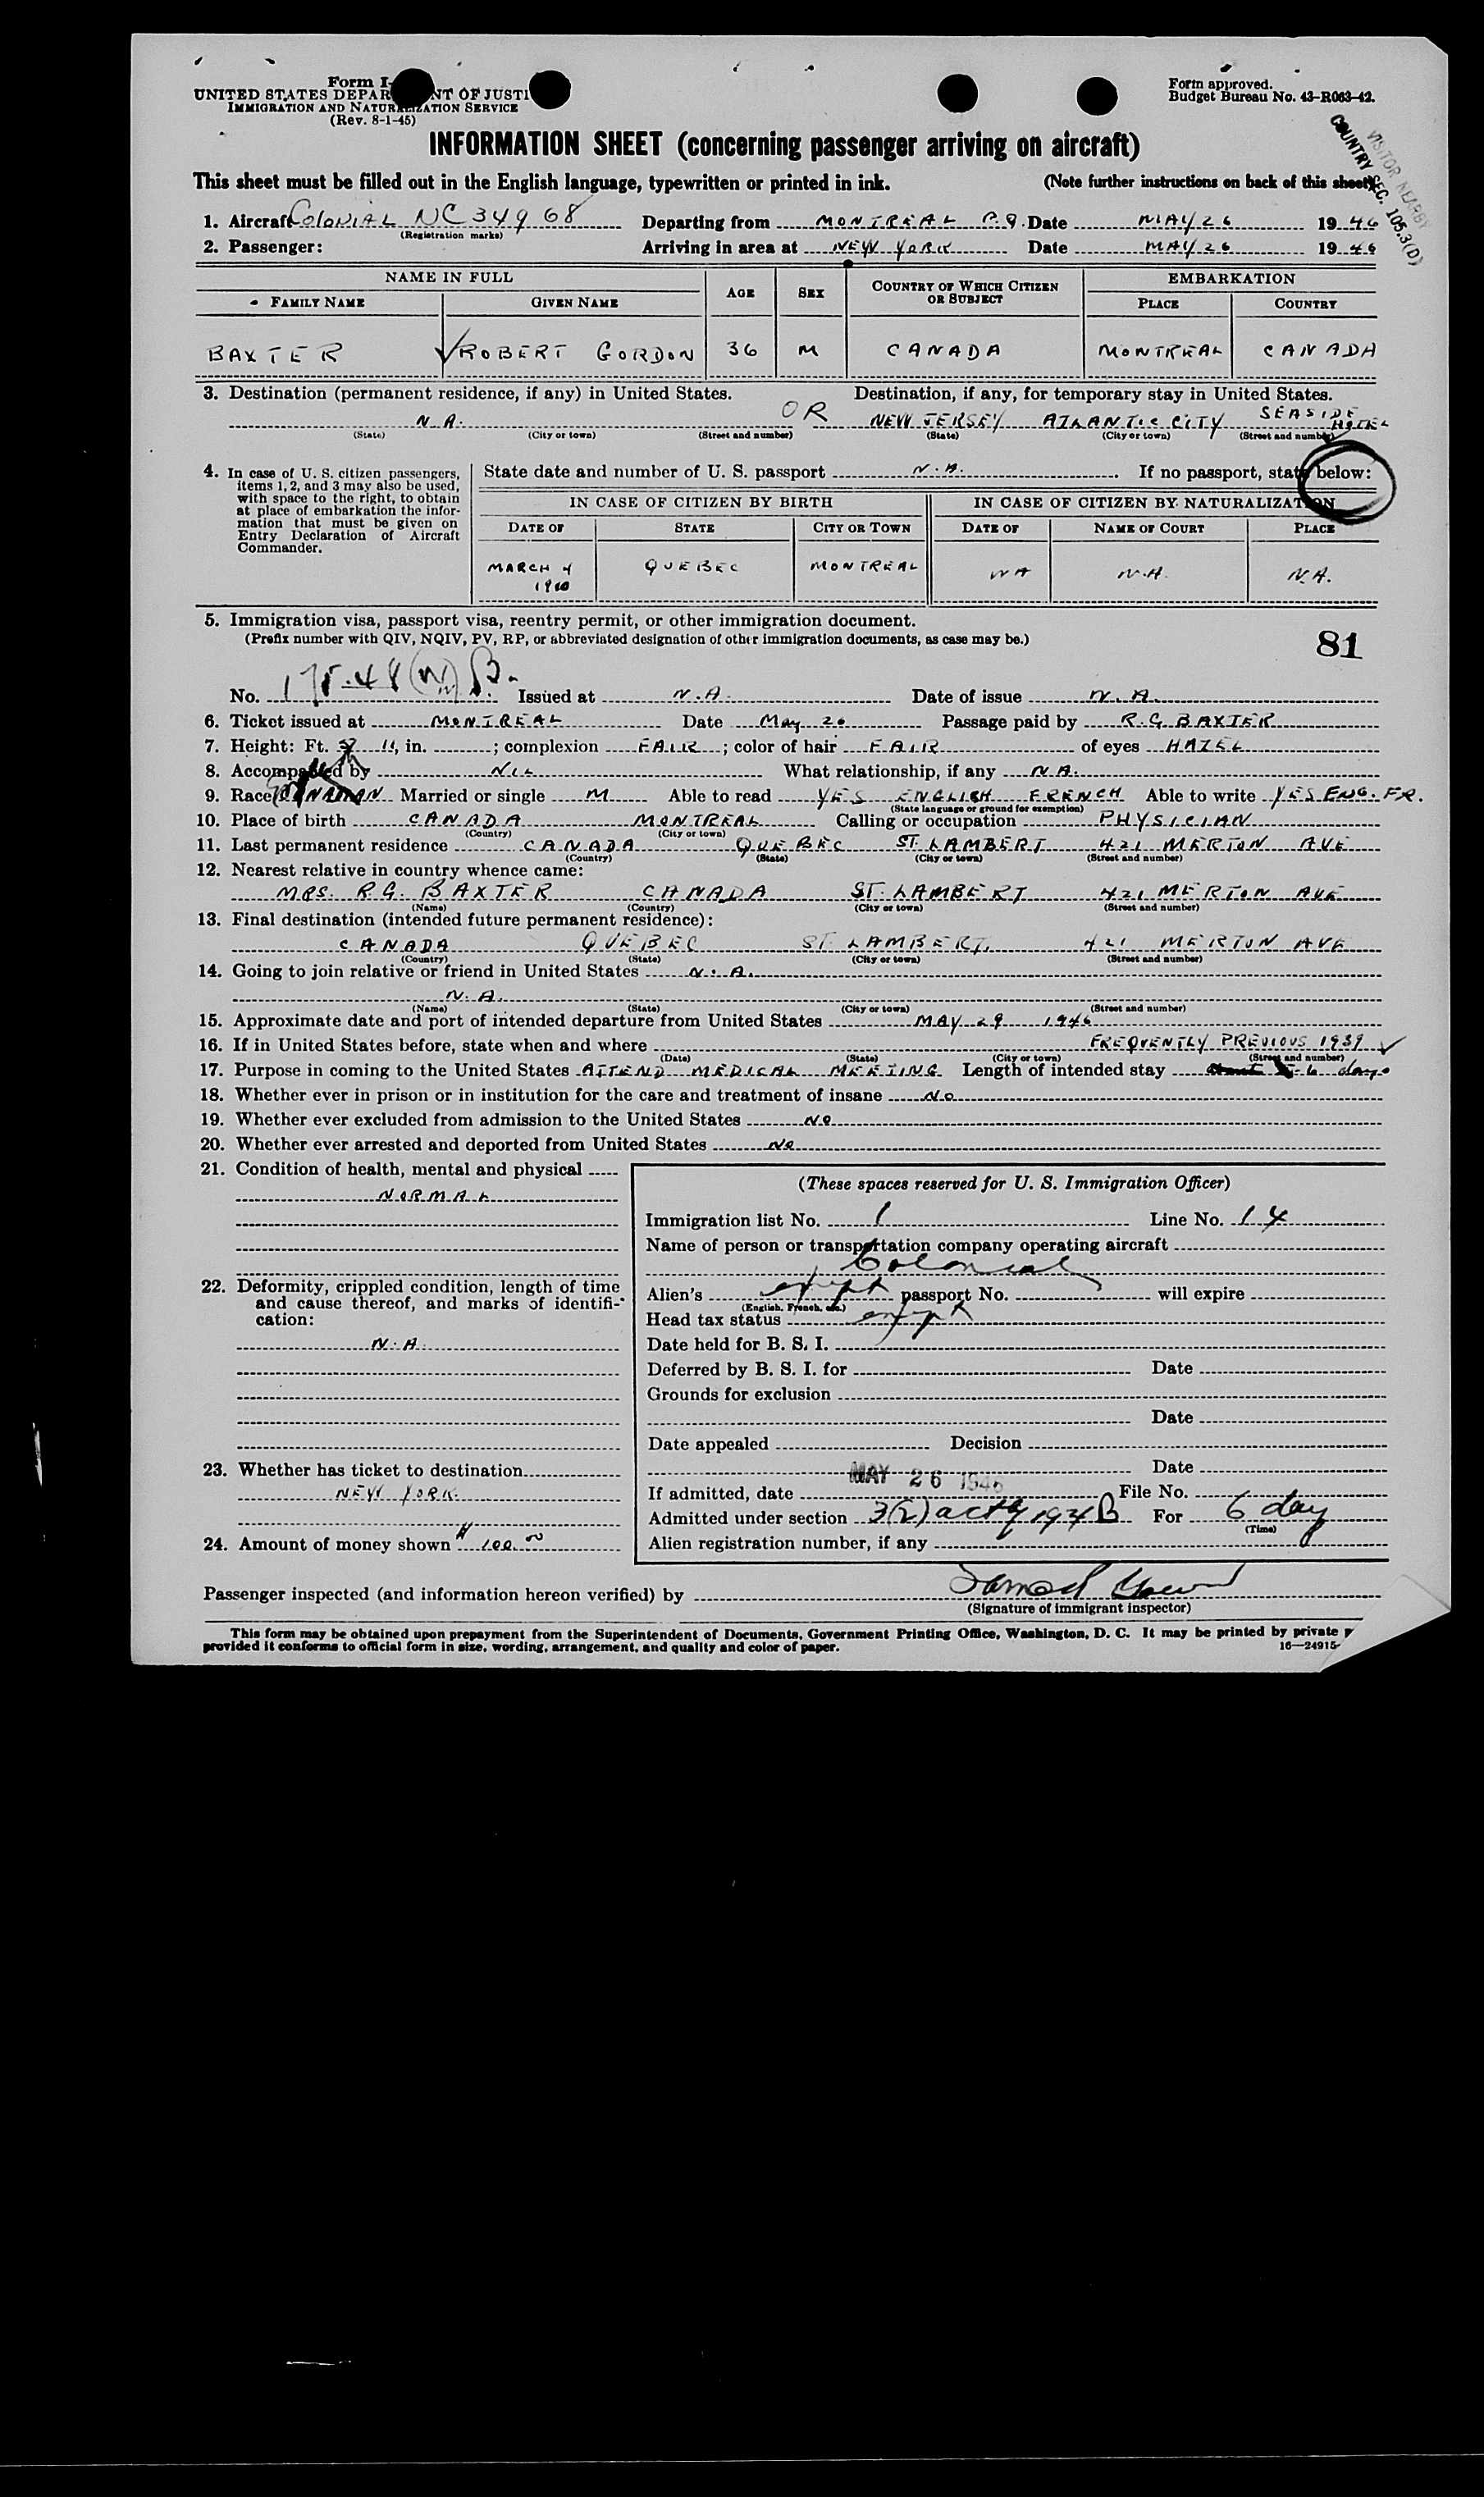 Form I-
UNITED STATES DEPAR NT OF JUSTI
IMMIGRATION AND NATURALIZATION SERVICE
(Rev. 8-1-45)
Form approved.
Budget Bureau No. 43-R063-42.
VISITOR NEARBY
COUNTRY SEC. 105.3(D)
INFORMATION SHEET (concerning passenger arriving on aircraft)
This sheet must be filled out in the English language, typewritten or printed in ink. (Note further instructions on back of this sheet)
1. Aircraft COLONIAL NC 34968 Departing from MONTREAL P.Q. Date MAY 26 1946
(Registration marks)
2. Passenger: Arriving in area at NEW YORK Date MAY 26 1946
NAME IN FULL AGE SEX COUNTRY OF WHICH CITIZEN OR SUBJECT EMBARKATION
FAMILY NAME GIVEN NAME PLACE COUNTRY
BAXTER ROBERT GORDON 36 M CANADA MONTREAL CANADA
3. Destination (permanent residence, if any) in United States. Destination, if any, for temporary stay in United States.
N.A. OR NEW JERSEY ATLANTIC CITY SEASIDE HOTEL
(State) (City or town) (Street and number) (State) (City or town) (Street and number)
4. In case of U. S. citizen passengers,
items 1, 2, and 3 may also be used,
with space to the right, to obtain
at place of embarkation the infor-
mation that must be given on
Entry Declaration of Aircraft
Commander.
State date and number of U. S. passport N.A. If no passport, state below:
IN CASE OF CITIZEN BY BIRTH IN CASE OF CITIZEN BY NATURALIZATION
DATE OF STATE CITY OR TOWN DATE OF NAME OF COURT PLACE
MARCH 4 1910 QUEBEC MONTREAL NA N.A. N.A.
5. Immigration visa, passport visa, reentry permit, or other immigration document.
(Prefix number with QIV, NQIV, PV, RP, or abbreviated designation of other immigration documents, as case may be.)
81
No. Issued at N.A. Date of issue N.A.
6. Ticket issued at MONTREAL Date May 26 Passage paid by R.G. BAXTER
7. Height: Ft. 11, in. ; complexion FAIR ; color of hair FAIR of eyes HAZEL
8. Accompanied by NIL What relationship, if any N.A.
9. Race Married or single M Able to read YES ENGLISH FRENCH Able to write YES ENG. FR.
(State language or ground for exemption)
10. Place of birth CANADA MONTREAL Calling or occupation PHYSICIAN
(Country) (City or town)
11. Last permanent residence CANADA QUEBEC ST. LAMBERT 421 MERTON AVE
(Country) (State) (City or town) (Street and number)
12. Nearest relative in country whence came:
MRS. R.G. BAXTER CANADA ST. LAMBERT 421 MERTON AVE
(Name) (Country) (City or town) (Street and number)
13. Final destination (intended future permanent residence):
CANADA QUEBEC ST. LAMBERT. 421 MERTON AVE
(Country) (State) (City or town) (Street and number)
14. Going to join relative or friend in United States N.A.
N.A.
(Name) (State) (City or town) (Street and number)
15. Approximate date and port of intended departure from United States MAY 29 1946
16. If in United States before, state when and where FREQUENTLY PREVIOUS 1939
(Date) (State) (City or town) (Street and number)
17. Purpose in coming to the United States ATTEND MEDICAL MEETING Length of intended stay 6 days
18. Whether ever in prison or in institution for the care and treatment of insane No
19. Whether ever excluded from admission to the United States No
20. Whether ever arrested and deported from United States No
21. Condition of health, mental and physical
NORMAL
22. Deformity, crippled condition, length of time
and cause thereof, and marks of identifi-
cation:
N.A.
23. Whether has ticket to destination
NEW YORK
24. Amount of money shown $100.00
(These spaces reserved for U. S. Immigration Officer)
Immigration list No. 1 Line No. 14
Name of person or transportation company operating aircraft
Colonial
Alien's exempt passport No. will expire
(English, French, etc.)
Head tax status exempt
Date held for B. S. I.
Deferred by B. S. I. for Date
Grounds for exclusion
Date
Date appealed Decision
Date
If admitted, date MAY 26 1946 File No.
Admitted under section 3(2) act of 1924 B For 6 day
(Time)
Alien registration number, if any
Passenger inspected (and information hereon verified) by
(Signature of immigrant inspector)
This form may be obtained upon prepayment from the Superintendent of Documents, Government Printing Office, Washington, D. C. It may be printed by private p
provided it conforms to official form in size, wording, arrangement, and quality and color of paper.
16—24915